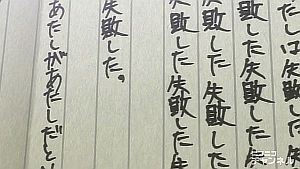 たしは失敗
した失敗した
した失敗した失敗
した失敗した失
失敗した。
あたしがあたしだと
ニコニコ
チャンネル